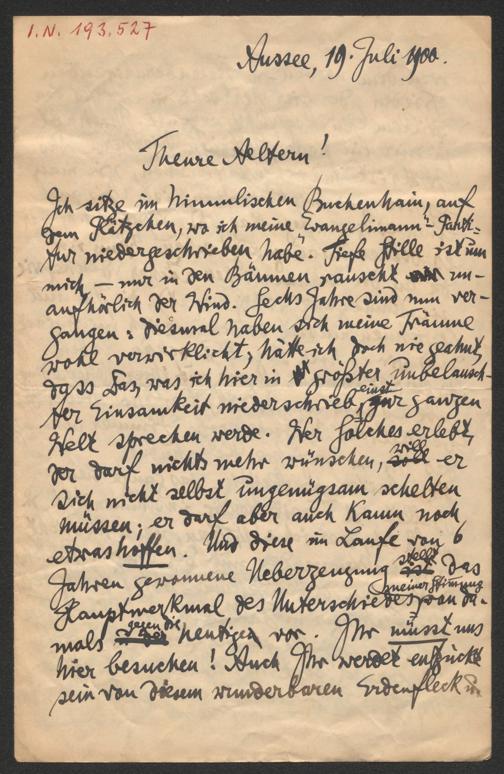 I.N. 193.527
Aussee, 19. Juli 1900.
Theure Aeltern!
Ich sitze im himmlischen Buchenhain, auf
dem Plätzchen, wo ich meine „Evangelimann"-Parti-
tur niedergeschrieben habe. Tiefe Stille ist um
mich – nur in den Bäumen rauscht un-
aufhörlich der Wind. Sechs Jahre sind nun ver-
gangen: diesmal haben sich meine Träume
wohl verwirklicht, hätte ich doch nie geahnt,
dass Das, was ich hier in größter unbelausch-
ter Einsamkeit niederschrieb, einst zur ganzen
Welt sprechen werde. Wer Solches erlebt,
der darf nichts mehr wünschen, will er
sich nicht selbst ungenügsam schelten
müssen; er darf aber auch kaum noch
etwas hoffen. Und diese im Laufe von 6
Jahren gewonnene Ueberzeugung stellt das
Hauptmerkmal des Unterschiedes meiner Stimmung von da-
mals gegen die heutige vor. Ihr müsst uns
hier besuchen! Auch Ihr werdet entzückt
sein von diesem wunderbaren Erdenfleck u.